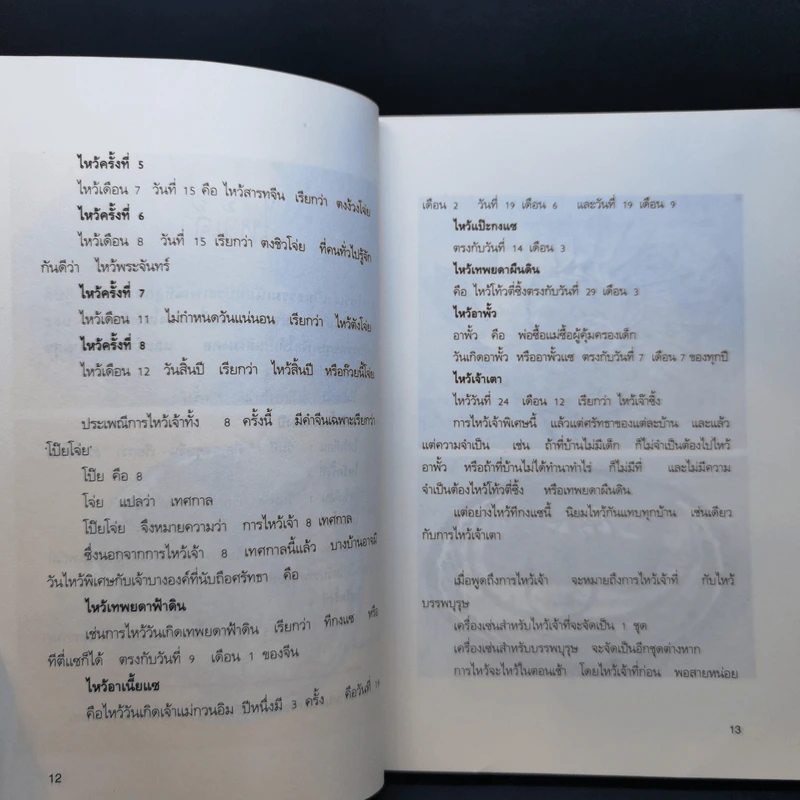 ไหว้ครั้งที่ 5
ไหว้เดือน 7 วันที่ 15 คือ ไหว้สารทจีน เรียกว่า ตงง้วงโจ่ย
ไหว้ครั้งที่ 6
ไหว้เดือน 8 วันที่ 15 เรียกว่า ตงชิวโจ่ย ที่คนทั่วไปรู้จัก
กันดีว่า ไหว้พระจันทร์
ไหว้ครั้งที่ 7
ไหว้เดือน 11 ไม่กำหนดวันแน่นอน เรียกว่า ไหว้ตังโจ่ย
ไหว้ครั้งที่ 8
ไหว้เดือน 12 วันสิ้นปี เรียกว่า ไหว้สิ้นปี หรือก๊วยนี้โจ่ย
ประเพณีการไหว้เจ้าทั้ง 8 ครั้งนี้ มีคำจีนเฉพาะเรียกว่า
'โป๊ยโจ่ย'
โป๊ย คือ 8
โจ่ย แปลว่า เทศกาล
โป๊ยโจ่ย จึงหมายความว่า การไหว้เจ้า 8 เทศกาล
ซึ่งนอกจากการไหว้เจ้า 8 เทศกาลนี้แล้ว บางบ้านอาจมี
วันไหว้พิเศษกับเจ้าบางองค์ที่นับถือศรัทธา คือ
ไหว้เทพยดาฟ้าดิน
เช่นการไหว้วันเกิดเทพยดาฟ้าดิน เรียกว่า ทีกงแซ หรือ
ทีตี่แซก็ได้ ตรงกับวันที่ 9 เดือน 1 ของจีน
ไหว้อาเนี้ยแซ
คือไหว้วันเกิดเจ้าแม่กวนอิม ปีหนึ่งมี 3 ครั้ง คือวันที่ 19
12
เดือน 2 วันที่ 19 เดือน 6 และวันที่ 19 เดือน 9
ไหว้แป๊ะกงแซ
ตรงกับวันที่ 14 เดือน 3
ไหว้เทพยดาผืนดิน
คือ ไหว้โท้วตี่ซิ้งตรงกับวันที่ 29 เดือน 3
ไหว้อาพั้ว
อาพั้ว คือ พ่อซื้อแม่ซื้อผู้คุ้มครองเด็ก
วันเกิดอาพั้ว หรืออาพั้วแซ ตรงกับวันที่ 7 เดือน 7 ของทุกปี
ไหว้เจ้าเตา
ไหว้วันที่ 24 เดือน 12 เรียกว่า ไหว้เจ๊าซิ้ง
การไหว้เจ้าพิเศษนี้ แล้วแต่ศรัทธาของแต่ละบ้าน และแล้ว
แต่ความจำเป็น เช่น ถ้าที่บ้านไม่มีเด็ก ก็ไม่จำเป็นต้องไปไหว้
อาพั้ว หรือถ้าที่บ้านไม่ได้ทำนาทำไร่ ก็ไม่มีที่ และไม่มีความ
จำเป็นต้องไหว้โท้วตี่ซิ้ง หรือเทพยดาผืนดิน
แต่อย่างไหว้ทีกงแซนี้ นิยมไหว้กันแทบทุกบ้าน เช่นเดียว
กับการไหว้เจ้าเตา
เมื่อพูดถึงการไหว้เจ้า จะหมายถึงการไหว้เจ้าที่ กับไหว้
บรรพบุรุษ
เครื่องเซ่นสำหรับไหว้เจ้าที่จะจัดเป็น 1 ชุด
เครื่องเซ่นสำหรับบรรพบุรุษ จะจัดเป็นอีกชุดต่างหาก
การไหว้จะไหว้ในตอนเช้า โดยไหว้เจ้าที่ก่อน พอสายหน่อย
13